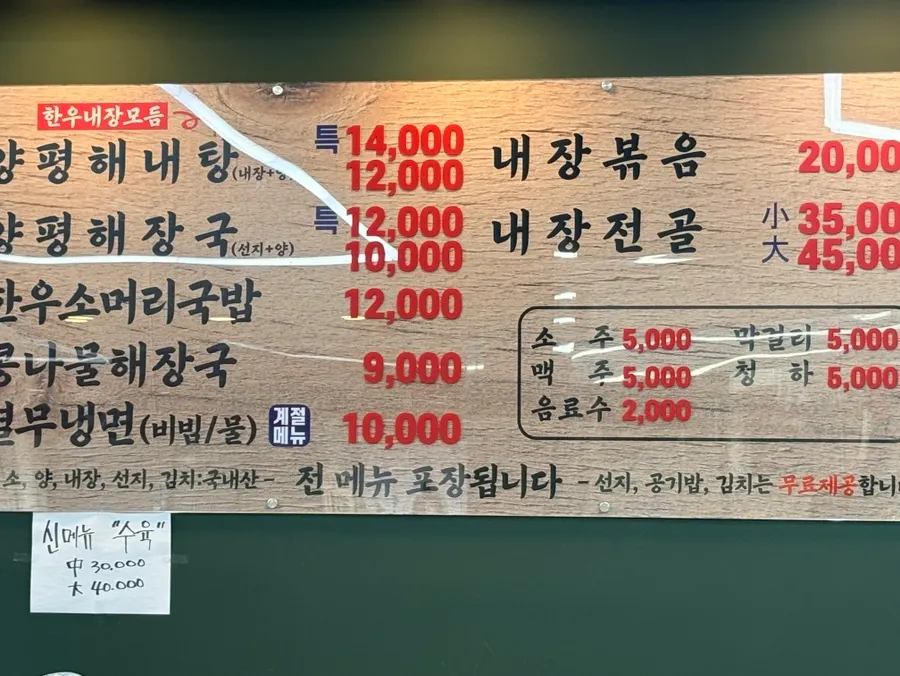 한우내장모듬
양평해내탕(내장+양) 특 14,000
12,000
양평해장국(선지+양) 특 12,000
10,000
한우소머리국밥 12,000
콩나물해장국 9,000
열무냉면(비빔/물) 계절메뉴 10,000
내장볶음 20,00
내장전골 小 35,00
大 45,00
소주 5,000 막걸리 5,000
맥주 5,000 청하 5,000
음료수 2,000
소, 양, 내장, 선지, 김치:국내산- 전 메뉴 포장됩니다 -선지, 공기밥, 김치는 무료제공합니
신메뉴 "수육"
中 30.000
大 40.000